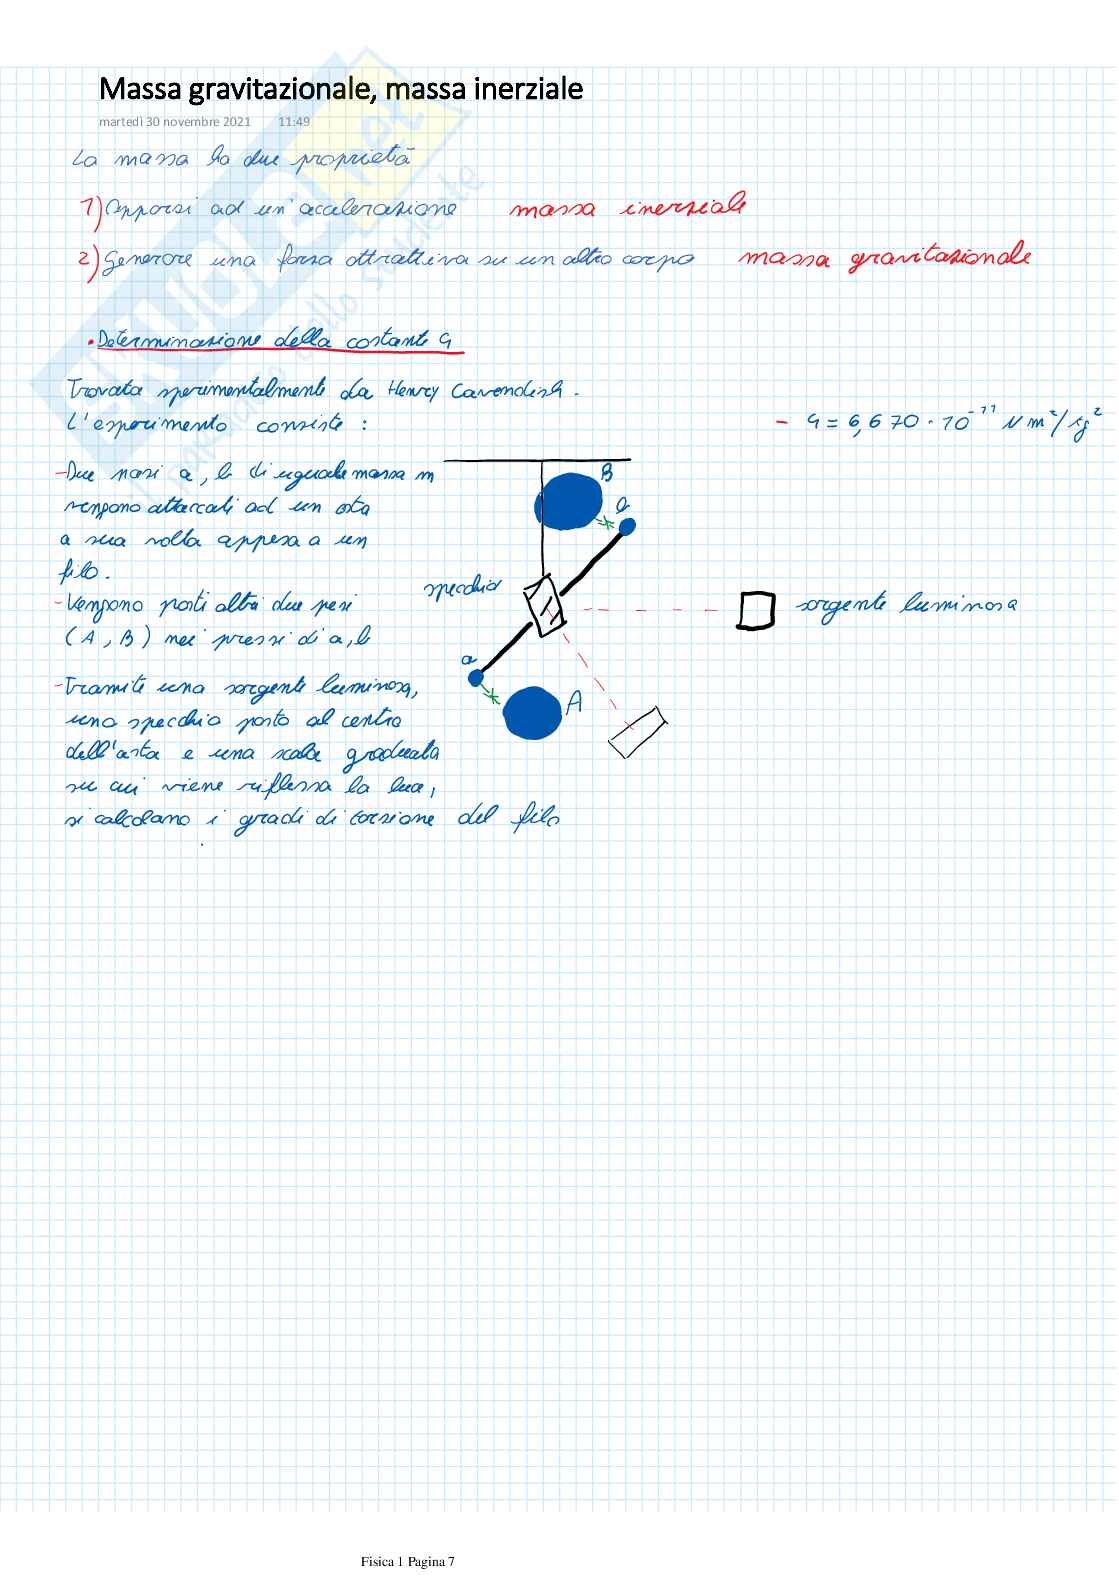 Massa gravitazionale, massa inerziale
martedì 30 novembre 2021 11:49
La massa ha due proprietà
1) Opporsi ad un'accelerazione massa inerziale
2) Generare una forza attrattiva su un altro corpo massa gravitazionale
• Determinazione della costante G
Trovata sperimentalmente da Henry Cavendish.
L'esperimento consiste :
- G = 6,670 · 10⁻¹¹ N m²/kg²
- Due masi a, b di uguale massa m
vengono attaccati ad un asta
a sua volta appesa a un
filo.
- Vengono posti altri due pesi
(A, B) nei pressi di a, b
- Tramite una sorgente luminosa,
uno specchio posto al centro
dell'asta e una scala graduata
su cui viene riflessa la luce,
si calcolano i gradi di torsione del filo
B
b
specchio
sorgente luminosa
a
A
Fisica 1 Pagina 7